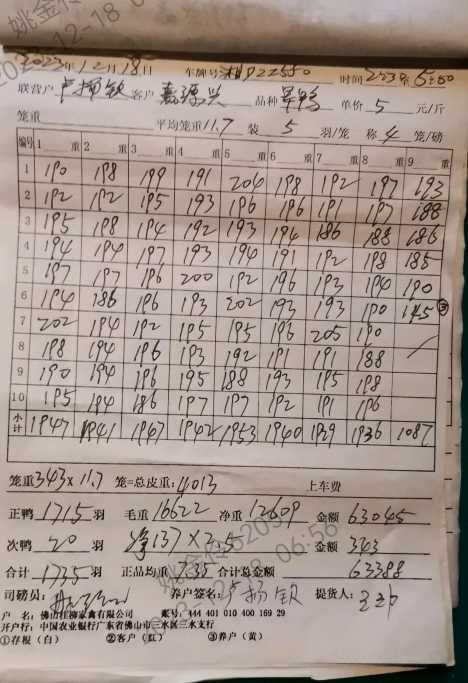 2023年12月18日 车牌号湘D22550 时间
联营户 卢扬钦 客户 嘉源兴 品种 旱鸭 单价 5 元/斤
笼重 平均笼重11.7 装 5 羽/笼 称 4 笼/磅
编号 1 重 2 重 3 重 4 重 5 重 6 重 7 重 8 重 9 重
1 190 198 199 191 204 198 192 197 193
2 192 192 195 193 196 196 191 197 188
3 195 198 194 192 193 194 186 188 186
4 194 194 197 193 194 191 192 198 185
5 197 197 196 200 192 196 193 194 190
6 194 186 196 193 202 193 193 190 145 ③
7 202 194 192 195 195 196 205 190
8 198 194 196 193 192 191 191 188
9 190 194 196 195 188 193 195 198
10 195 194 186 197 197 192 191 196
小计 1947 1941 1947 1942 1953 1940 1929 1936 1087
笼重343×11.7 笼=总皮重:4013 上车费
正鸭 1715 羽 毛重 16622 净重 12609 金额 63045
次鸭 20 羽 净137×2.5 金额 343
合计 1735 羽 正品均重 7.35 合计总金额 63388
司磅员: 养户签名: 卢扬钦 提货人:
户 名: 佛山桂柳家禽有限公司 账号: 444 401 010 400 169 29
开户行: 中国农业银行广东省佛山市三水区三水支行
①存根(白) ②客户(红) ③养户(黄)